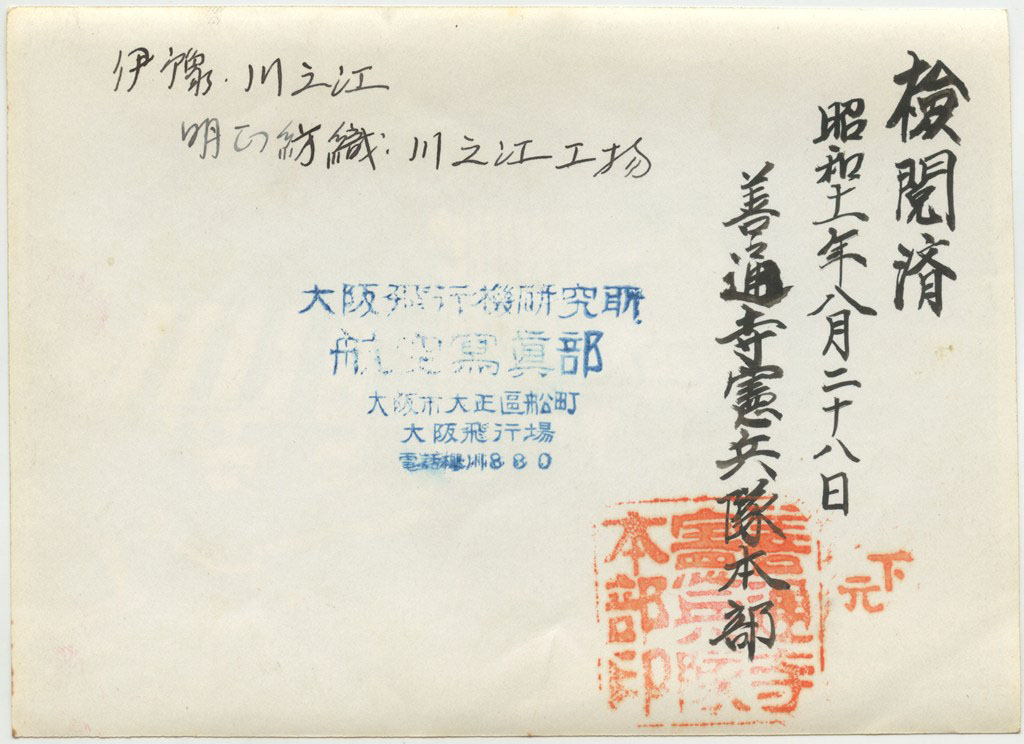 検閲済
昭和十一年八月二十八日
善通寺憲兵隊本部
下元
善通寺
憲兵隊
本部印
伊豫.川之江
明正紡織.川之江工場
大阪飛行機研究所
航空寫眞部
大阪市大正區船町
大阪飛行場
電話櫻川880